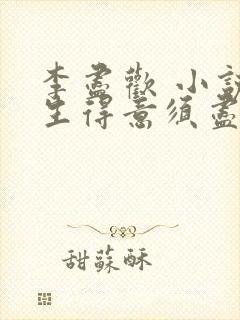 李盡歡 小說
生得意須盡
甜蘇酥